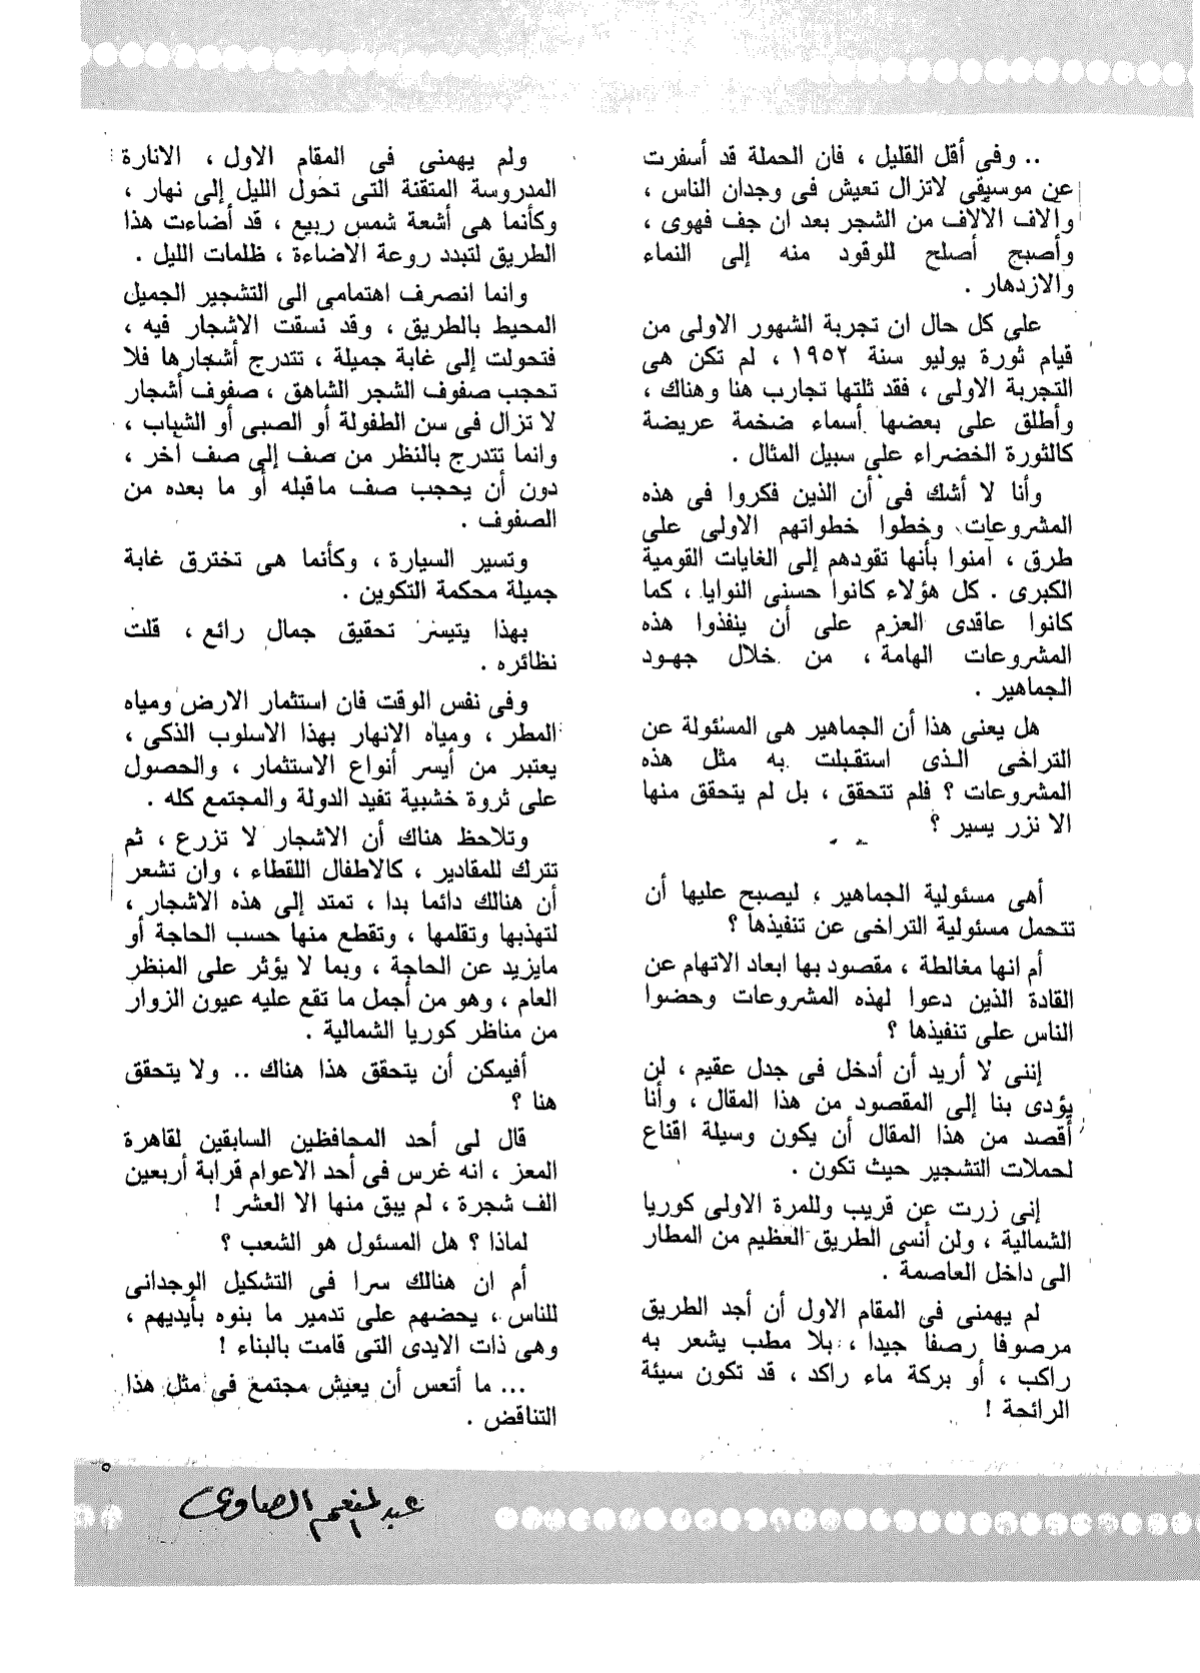 .. وفى أقل القليل ، فان الحملة قد أسفرت
عن موسيقى لاتزال تعيش فى وجدان الناس ،
وآلاف الآلاف من الشجر بعد ان جف فهوى ،
وأصبح أصلح للوقود منه إلى النماء
والازدهار .
على كل حال ان تجربة الشهور الاولى من
قيام ثورة يوليو سنة ١٩٥٢ ، لم تكن هى
التجربة الاولى ، فقد ثلتها تجارب هنا وهناك ،
وأطلق على بعضها أسماء ضخمة عريضة
كالثورة الخضراء على سبيل المثال .
وأنا لا أشك فى أن الذين فكروا فى هذه
المشروعات وخطوا خطواتهم الاولى على
طرق ، آمنوا بأنها تقودهم إلى الغايات القومية
الكبرى . كل هؤلاء كانوا حسنى النوايا ، كما
كانوا عاقدى العزم على أن ينفذوا هذه
المشروعات الهامة ، من خلال جهود
الجماهير .
هل يعنى هذا أن الجماهير هى المسئولة عن
التراخى الذى استقبلت به مثل هذه
المشروعات ؟ فلم تتحقق ، بل لم يتحقق منها
الا نزر يسير ؟
أهى مسئولية الجماهير ، ليصبح عليها أن
تتحمل مسئولية التراخى عن تنفيذها ؟
أم انها مغالطة ، مقصود بها ابعاد الاتهام عن
القادة الذين دعوا لهذه المشروعات وحضوا
الناس على تنفيذها ؟
إننى لا أريد أن أدخل فى جدل عقيم ، لن
يؤدى بنا إلى المقصود من هذا المقال ، وأنا
أقصد من هذا المقال أن يكون وسيلة اقناع
لحملات التشجير حيث تكون .
إنى زرت عن قريب وللمرة الاولى كوريا
الشمالية ، ولن أنسى الطريق العظيم من المطار
الى داخل العاصمة .
لم يهمنى فى المقام الاول أن أجد الطريق
مرصوفا رصفا جيدا ، بلا مطب يشعر به
راكب ، أو بركة ماء راكد ، قد تكون سيئة
الرائحة !
ولم يهمنى فى المقام الاول ، الانارة
المدروسة المتقنة التى تحول الليل إلى نهار ،
وكأنما هى أشعة شمس ربيع ، قد أضاءت هذا
الطريق لتبدد روعة الاضاءة ، ظلمات الليل .
وانما انصرف اهتمامى الى التشجير الجميل
المحيط بالطريق ، وقد نسقت الاشجار فيه ،
فتحولت إلى غابة جميلة ، تتدرج أشجارها فلا
تحجب صفوف الشجر الشاهق ، صفوف أشجار
لا تزال فى سن الطفولة أو الصبى أو الشباب ،
وانما تتدرج بالنظر من صف إلى صف آخر ،
دون أن يحجب صف ماقبله أو ما بعده من
الصفوف .
وتسير السيارة ، وكأنما هى تخترق غابة
جميلة محكمة التكوين .
بهذا يتيسر تحقيق جمال رائع ، قلت
نظائره .
وفى نفس الوقت فان استثمار الارض ومياه
المطر ، ومياه الانهار بهذا الاسلوب الذكى ،
يعتبر من أيسر أنواع الاستثمار ، والحصول
على ثروة خشبية تفيد الدولة والمجتمع كله .
وتلاحظ هناك أن الاشجار لا تزرع ، ثم
تترك للمقادير ، كالاطفال اللقطاء ، وان تشعر
أن هنالك دائما يدا ، تمتد إلى هذه الاشجار ،
لتهذبها وتقلمها ، وتقطع منها حسب الحاجة أو
مايزيد عن الحاجة ، وبما لا يؤثر على المنظر
العام ، وهو من أجمل ما تقع عليه عيون الزوار
من مناظر كوريا الشمالية .
أفيمكن أن يتحقق هذا هناك .. ولا يتحقق
هنا ؟
قال لى أحد المحافظين السابقين لقاهرة
المعز ، انه غرس فى أحد الاعوام قرابة أربعين
الف شجرة ، لم يبق منها الا العشر !
لماذا ؟ هل المسئول هو الشعب ؟
أم ان هنالك سرا فى التشكيل الوجدانى
للناس ، يحضهم على تدمير ما بنوه بأيديهم ،
وهى ذات الايدى التى قامت بالبناء !
... ما أتعس أن يعيش مجتمع فى مثل هذا
التناقض .
عبد المنعم الصاوى
٥